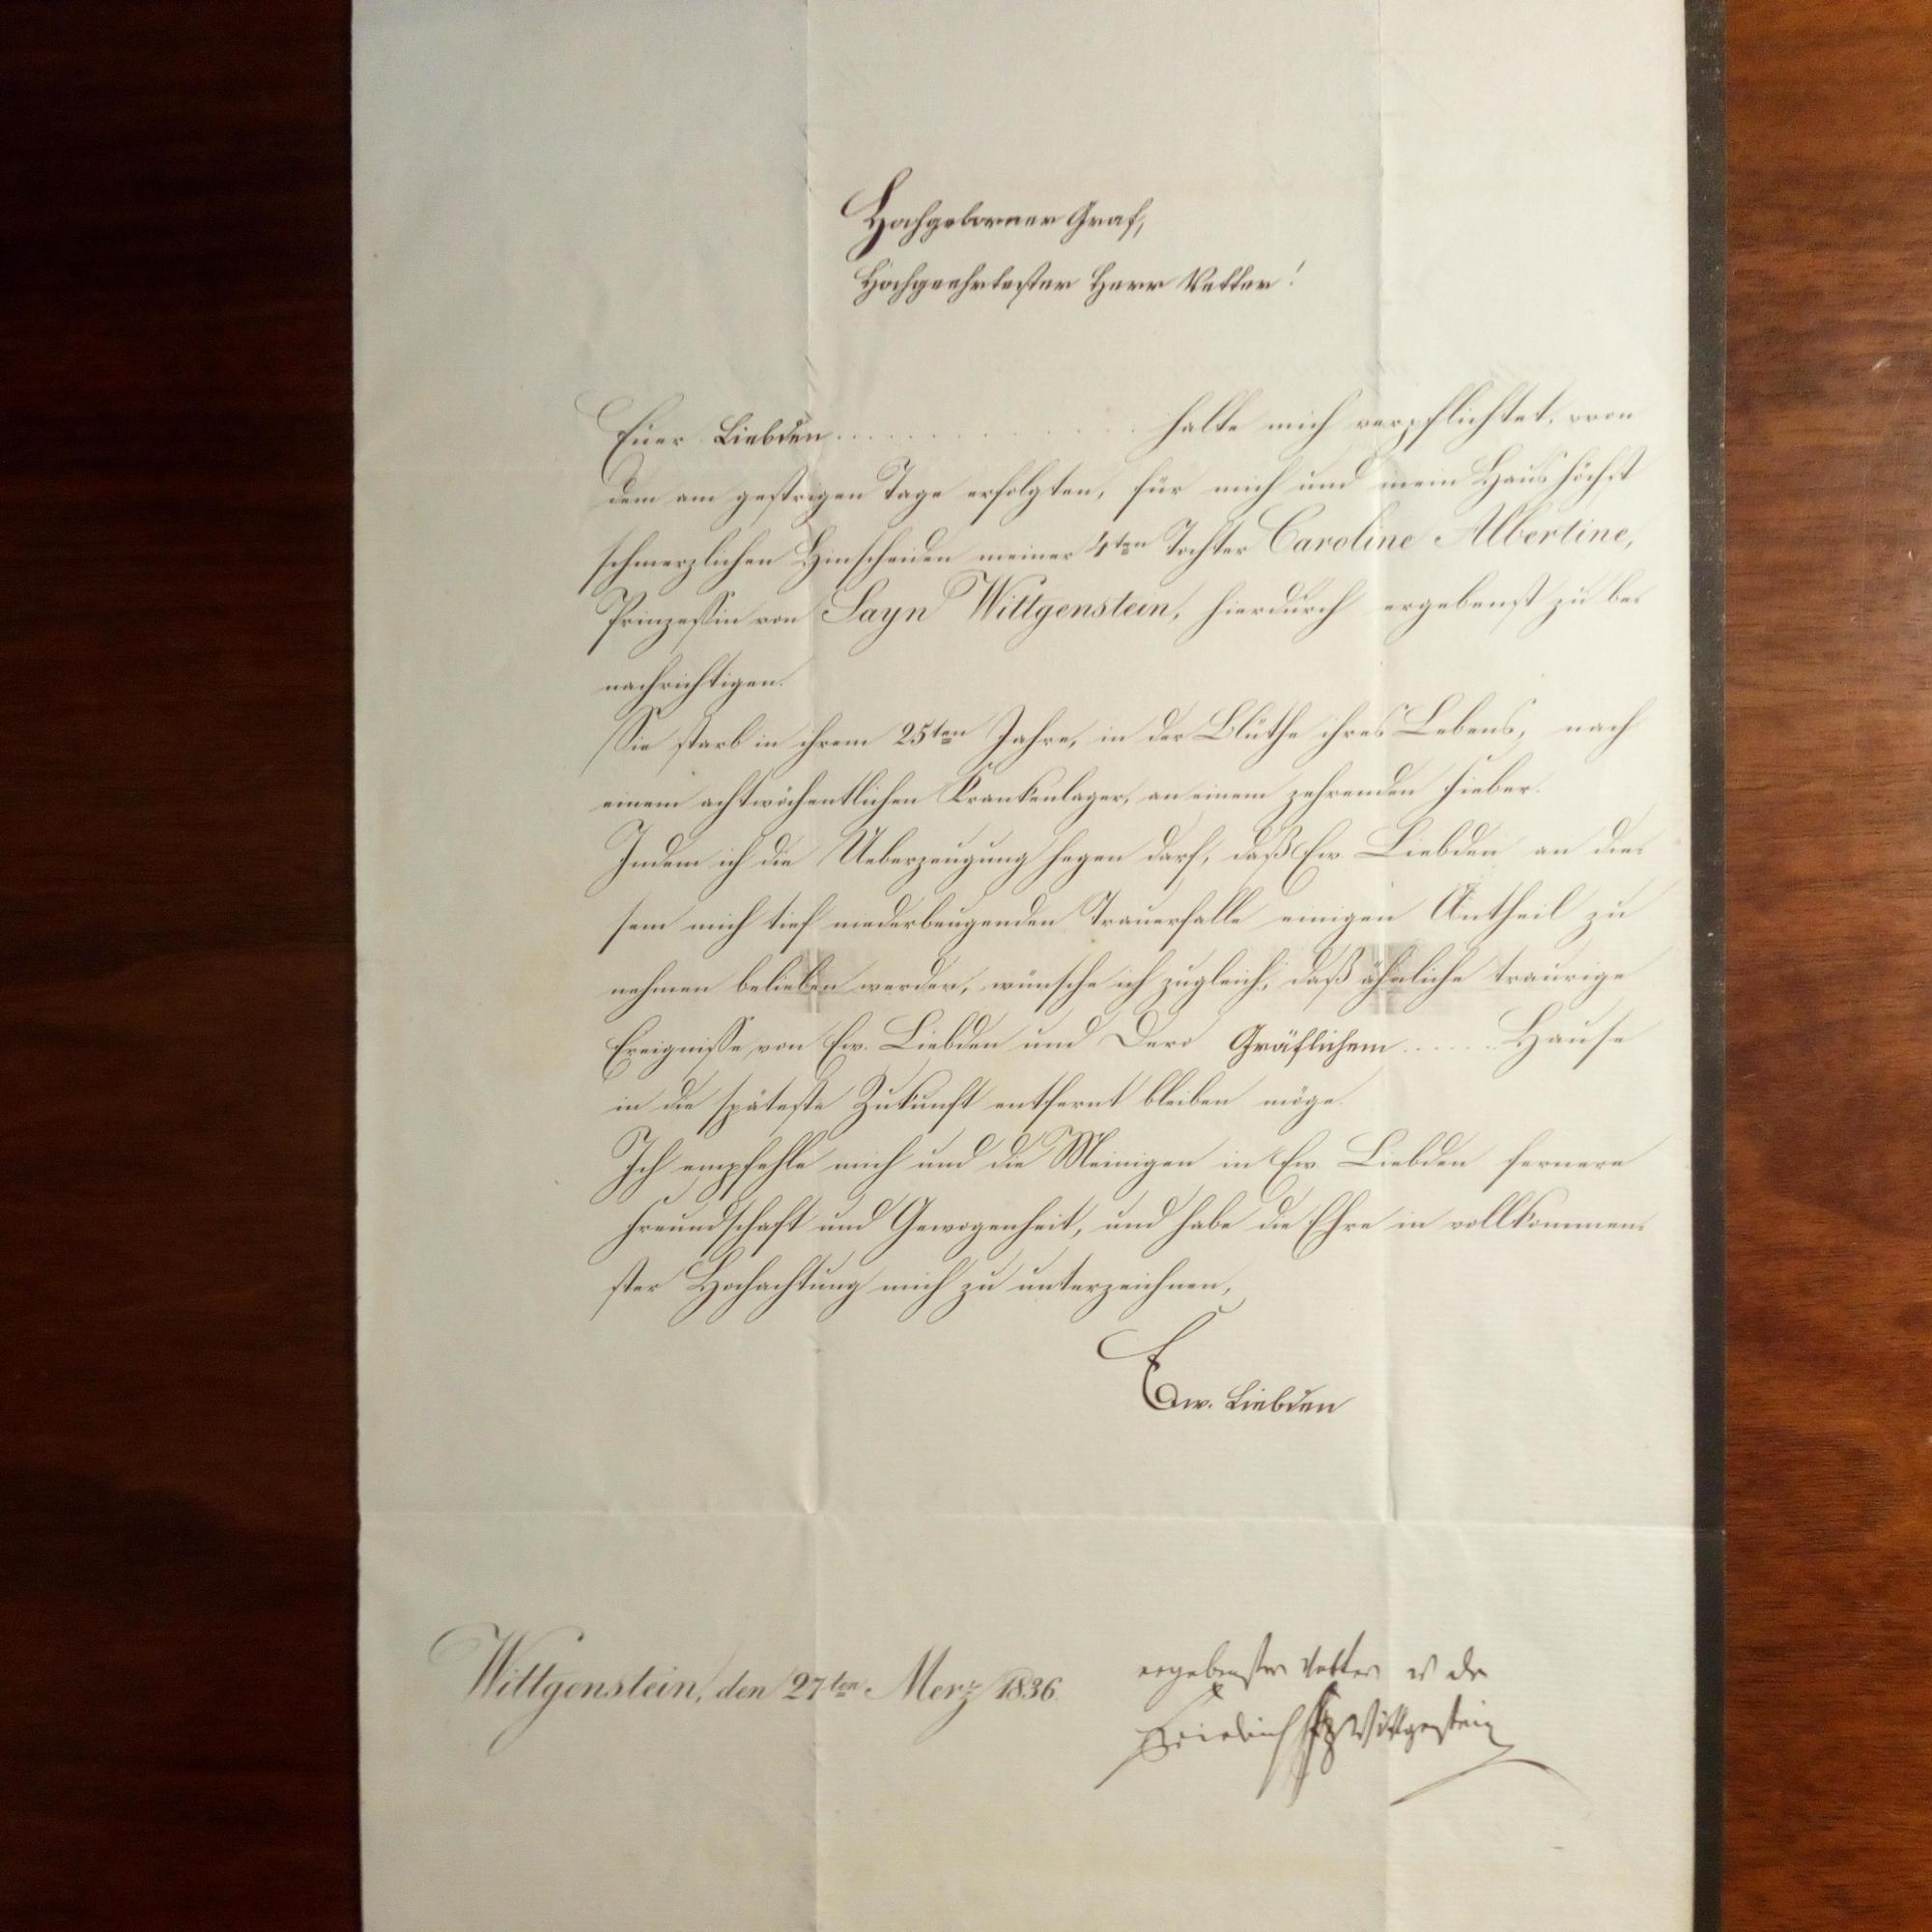 Hochgeborner Graf,
Hochgeehrtester Herr Vetter!
Euer Liebden.............. halte mich verpflichtet, von
dem am gestrigen Tage erfolgten, für mich und mein Haus höchst
schmerzlichen Hinscheiden meiner 4ten Tochter Caroline Albertine,
Prinzessin von Sayn Wittgenstein, hierdurch ergebenst zu be-
nachrichtigen.
Sie starb in ihrem 25ten Jahre, in der Blüthe ihres Lebens, nach
einem achtwöchentlichen Krankenlager, an einem zehrenden Fieber.
Indem ich die Ueberzeugung hegen darf, daß Ew. Liebden an die-
sem mich tief niederbeugenden Trauerfalle einigen Antheil zu
nehmen belieben werden, wünsche ich zugleich, daß ähnliche traurige
Ereignisse von Ew. Liebden und Dero Gräflichem....... Hause
in die späteste Zukunft entfernt bleiben möge.
Ich empfehle mich und die Meinigen in Ew. Liebden fernere
Freundschaft und Gewogenheit, und habe die Ehre in vollkommen-
ster Hochachtung mich zu unterzeichnen,
Ew. Liebden
Wittgenstein, den 27ten Merz 1836.
ergebenster Vetter
Friedrich Wittgenstein